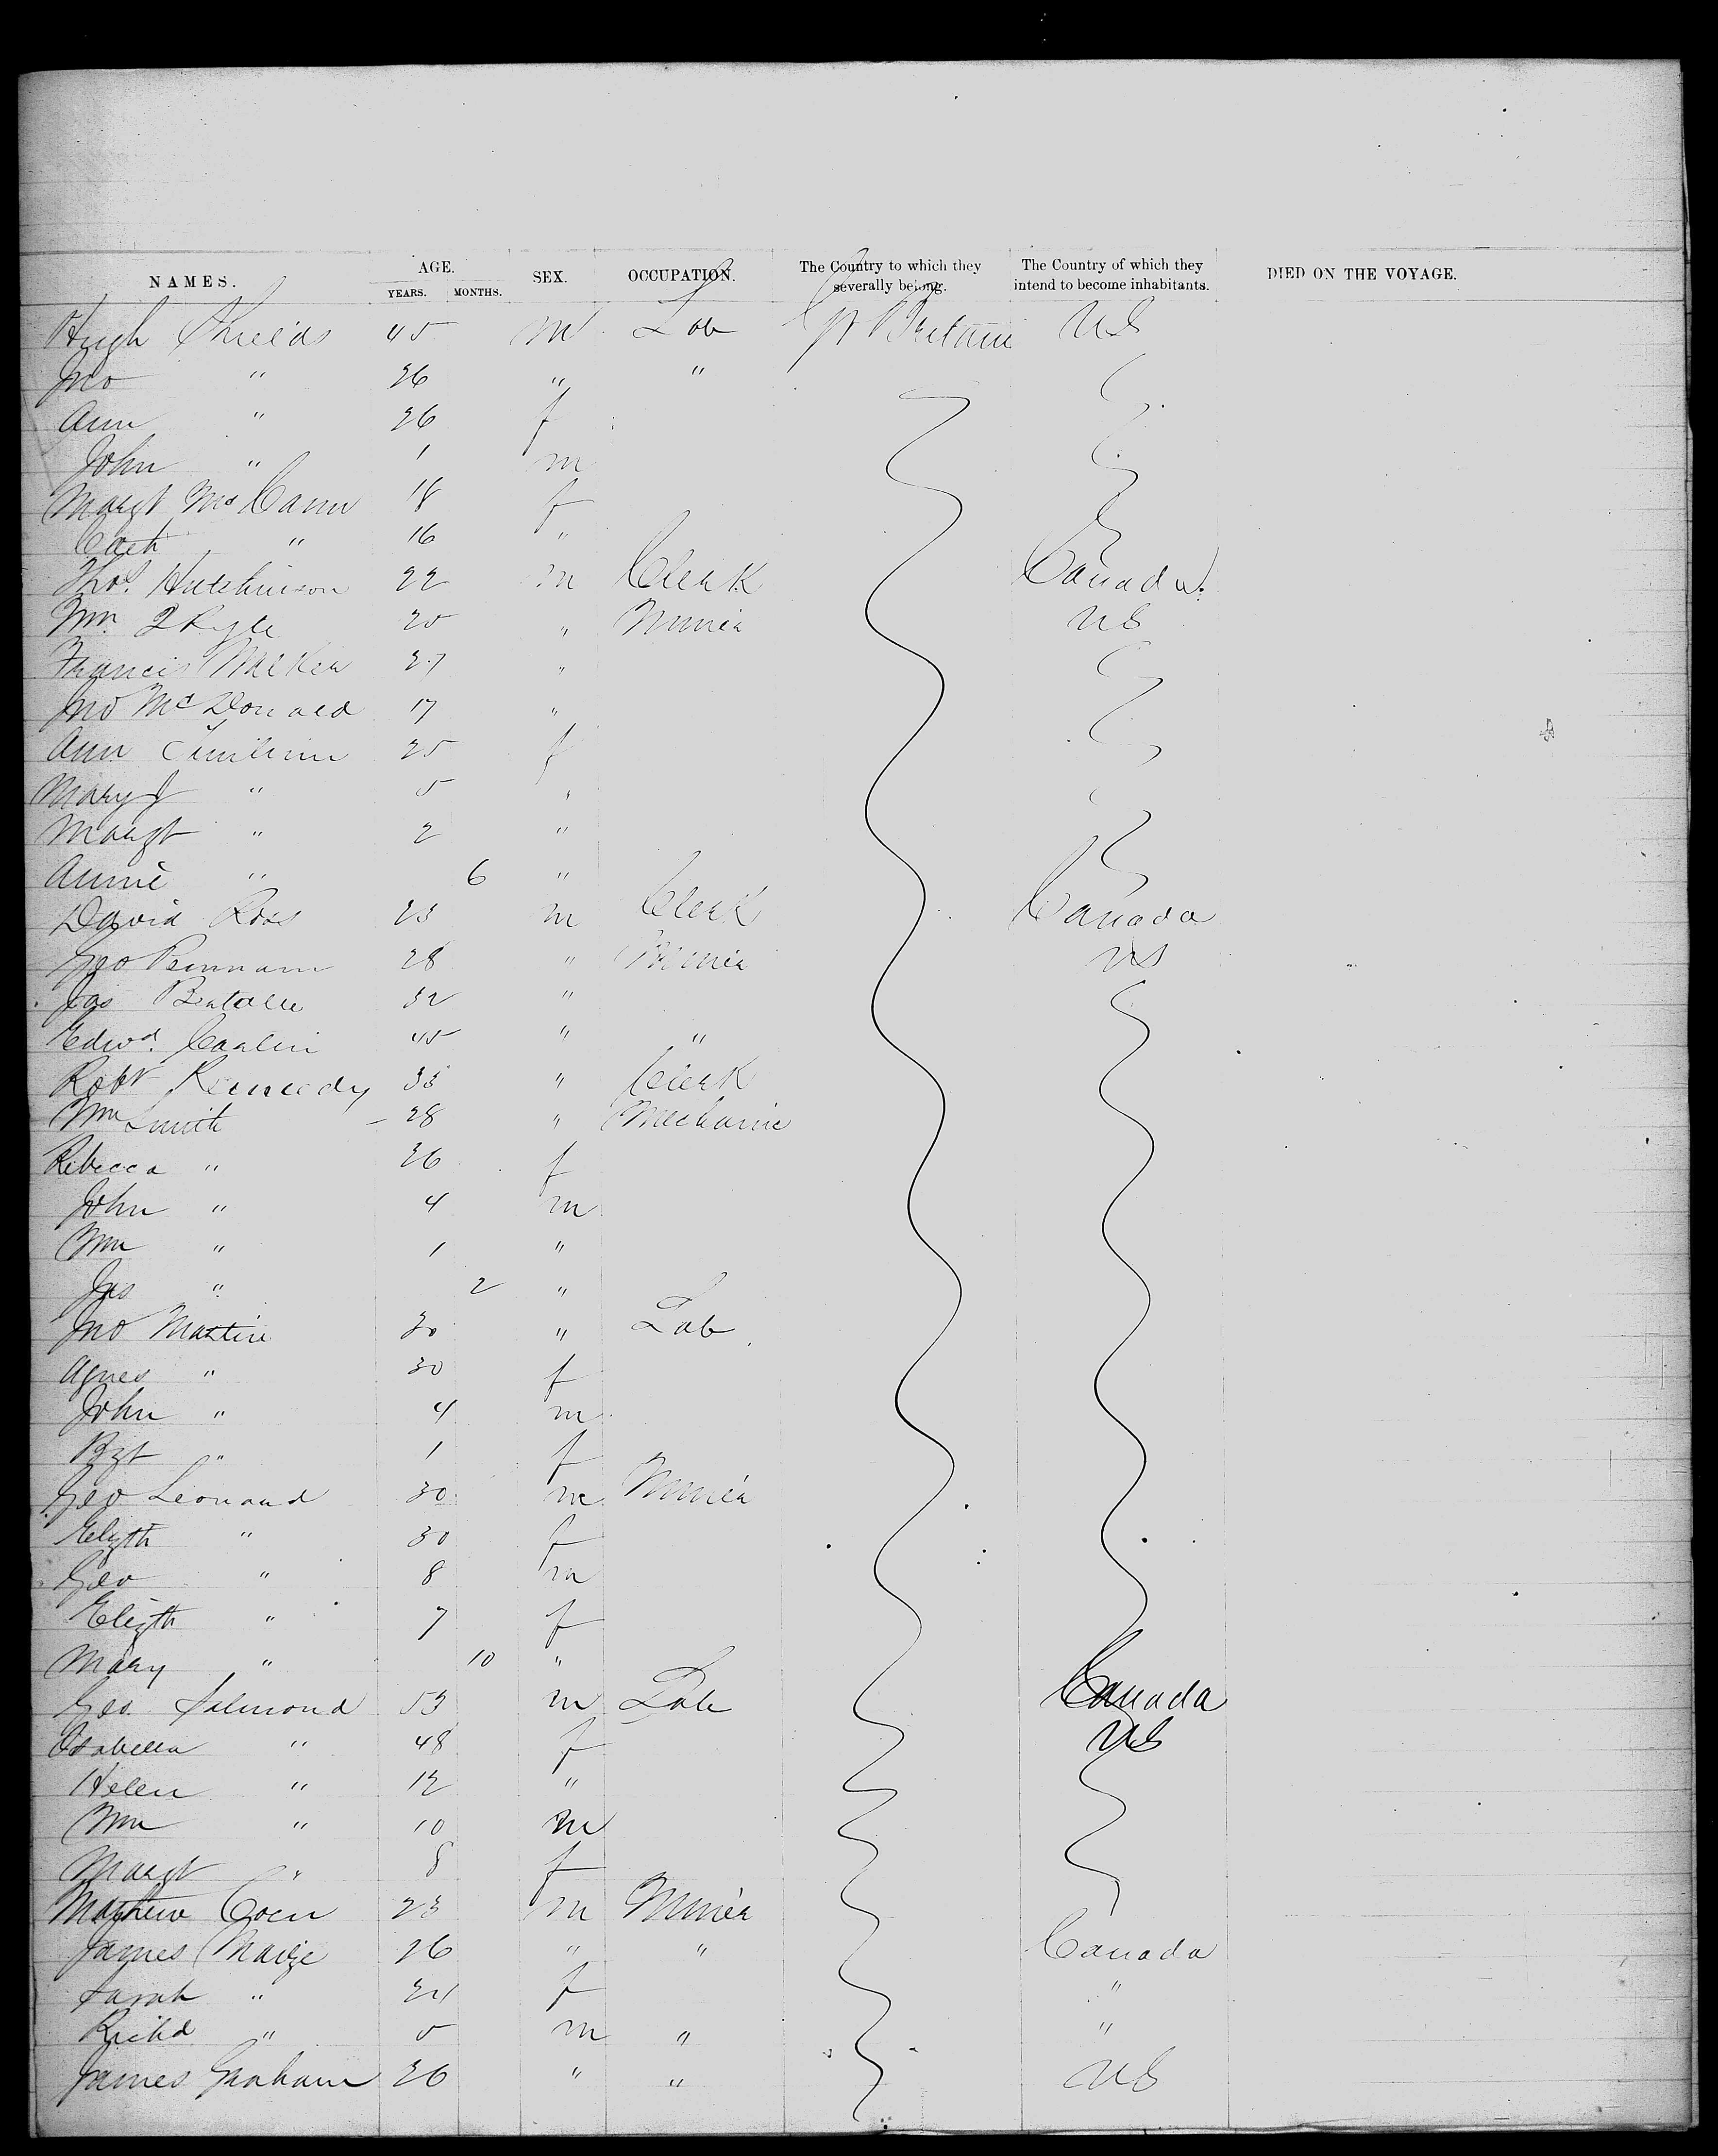 NAMES. AGE. YEARS. MONTHS. SEX. OCCUPATION. The Country to which they severally belong. The Country of which they intend to become inhabitants. DIED ON THE VOYAGE.
Hugh Shields 45 m Lab Gt Britain US
Jno " 26 " "
Ann " 26 f
John " 1 m
Margt McCann 18 f
Cath " 16 "
Thos. Hutchinson 22 m Clerk Canada.
Wm 20 " Miner US
Francis 27 "
Jno McDonald 17 "
Ann 25 f
Mary J " 5 "
Margt " 2 "
Annie " 6 "
David Ross 23 m Clerk Canada
Geo 28 " Miner US
Jas 32 "
Edwd. Carlin 45 " "
Robt Kennedy 35 " Clerk
Wm Smith 28 " Mechanic
Rebecca " 26 f
John " 4 m
Wm " 1 "
Jas " 2 "
Jno Martin 30 " Lab
Agnes " 30 f
John " 4 m
Bgt " 1 f
Geo Leonard 30 m Miner
Elizth " 30 f
Geo " 8 m
Elizth " 7 f
Mary " 10 "
Geo. Salmond 53 m Lab Canada
Isabella " 48 f US
Helen " 12 "
Wm " 10 m
Margt " 8 f
Mathew Coen 23 m Miner
James 26 " " Canada
Sarah " 24 f "
Richd " 5 m " "
James Graham 26 " " US